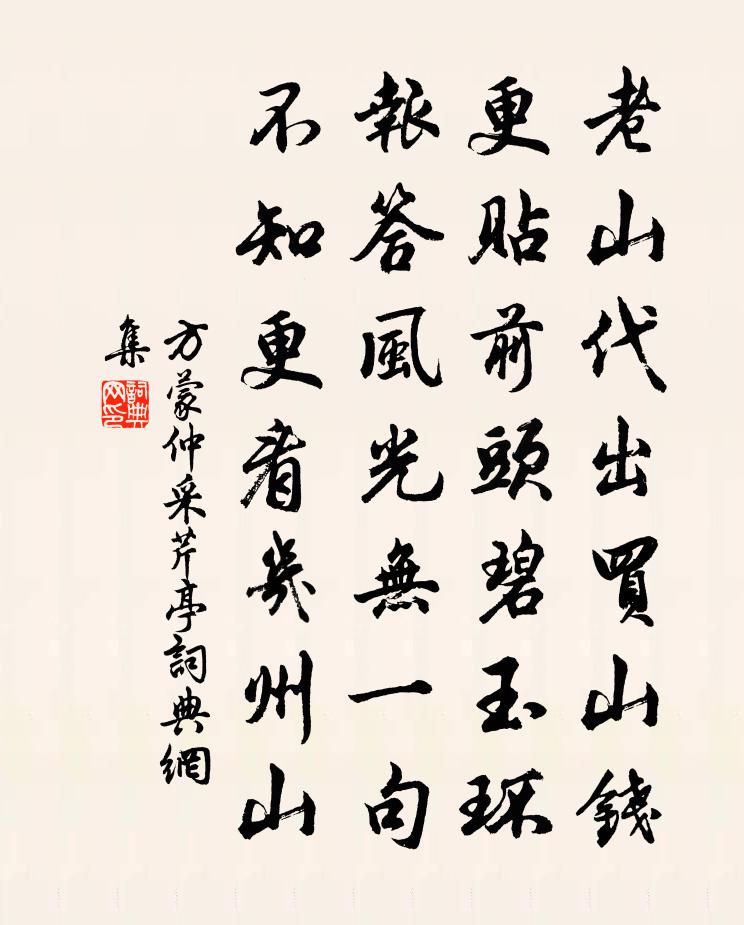 老山代出買山錢
更貼前頭碧玉环
報答風光無一句
不知更看幾州山
方蒙仲采芹亭詞典網
集
詞典網印